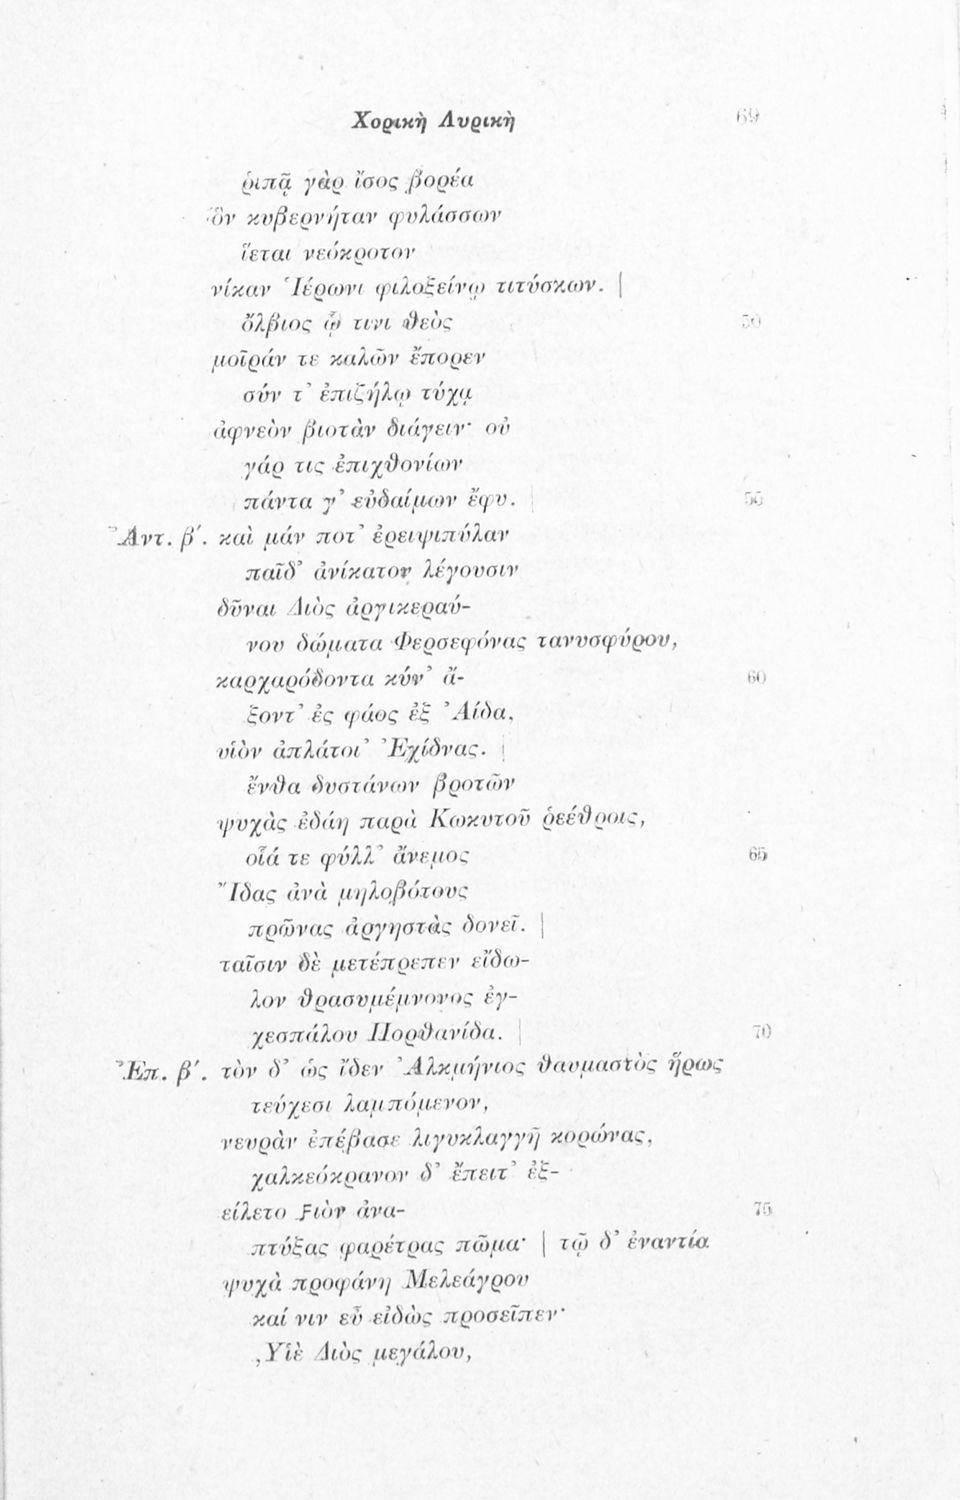 Χορικὴ Λυρικὴ 69
ῥιπᾷ γὰρ ἴσος βορέα
ὃν κυβερνήταν φυλάσσων
ἵεται νεόκροτον
νίκαν Ἱέρωνι φιλοξείνῳ τιτύσκων. |
ὄλβιος ᾧ τινι θεὸς 50
μοῖράν τε καλῶν ἔπορεν
σύν τ' ἐπιζήλῳ τύχᾳ
ἀφνεὸν βιοτὰν διάγειν· οὐ
γάρ τις ἐπιχθονίων
πάντα γ' εὐδαίμων ἔφυ. | 55
Ἀντ. β'. καὶ μάν ποτ' ἐρειψιπύλαν
παῖδ' ἀνίκατον λέγουσιν
δῦναι Διὸς ἀργικεραύ-
νου δώματα Φερσεφόνας τανυσφύρου,
καρχαρόδοντα κύν' ἄ- 60
ξοντ' ἐς φάος ἐξ Ἀίδα,
υἱὸν ἀπλάτοι' Ἐχίδνας. |
ἔνθα δυστάνων βροτῶν
ψυχὰς ἐδάη παρὰ Κωκυτοῦ ῥεέθροις,
οἷά τε φύλλ' ἄνεμος 65
Ἴδας ἀνὰ μηλοβότους
πρῶνας ἀργηστὰς δονεῖ. |
ταῖσιν δὲ μετέπρεπεν εἴδω-
λον θρασυμέμνονος ἐγ-
χεσπάλου Πορθανίδα. | 70
Ἐπ. β'. τὸν δ' ὡς ἴδεν Ἀλκμήνιος θαυμαστὸς ἥρως
τεύχεσι λαμπόμενον,
νευρὰν ἐπέβασε λιγυκλαγγῆ κορώνας,
χαλκεόκρανον δ' ἔπειτ' ἐξ-
είλετο ϝιὸν ἀνα- 75
πτύξας φαρέτρας πῶμα· | τῷ δ' ἐναντία
ψυχὰ προφάνη Μελεάγρου
καί νιν εὖ εἰδὼς προσεῖπεν·
‚Υἱὲ Διὸς μεγάλου,